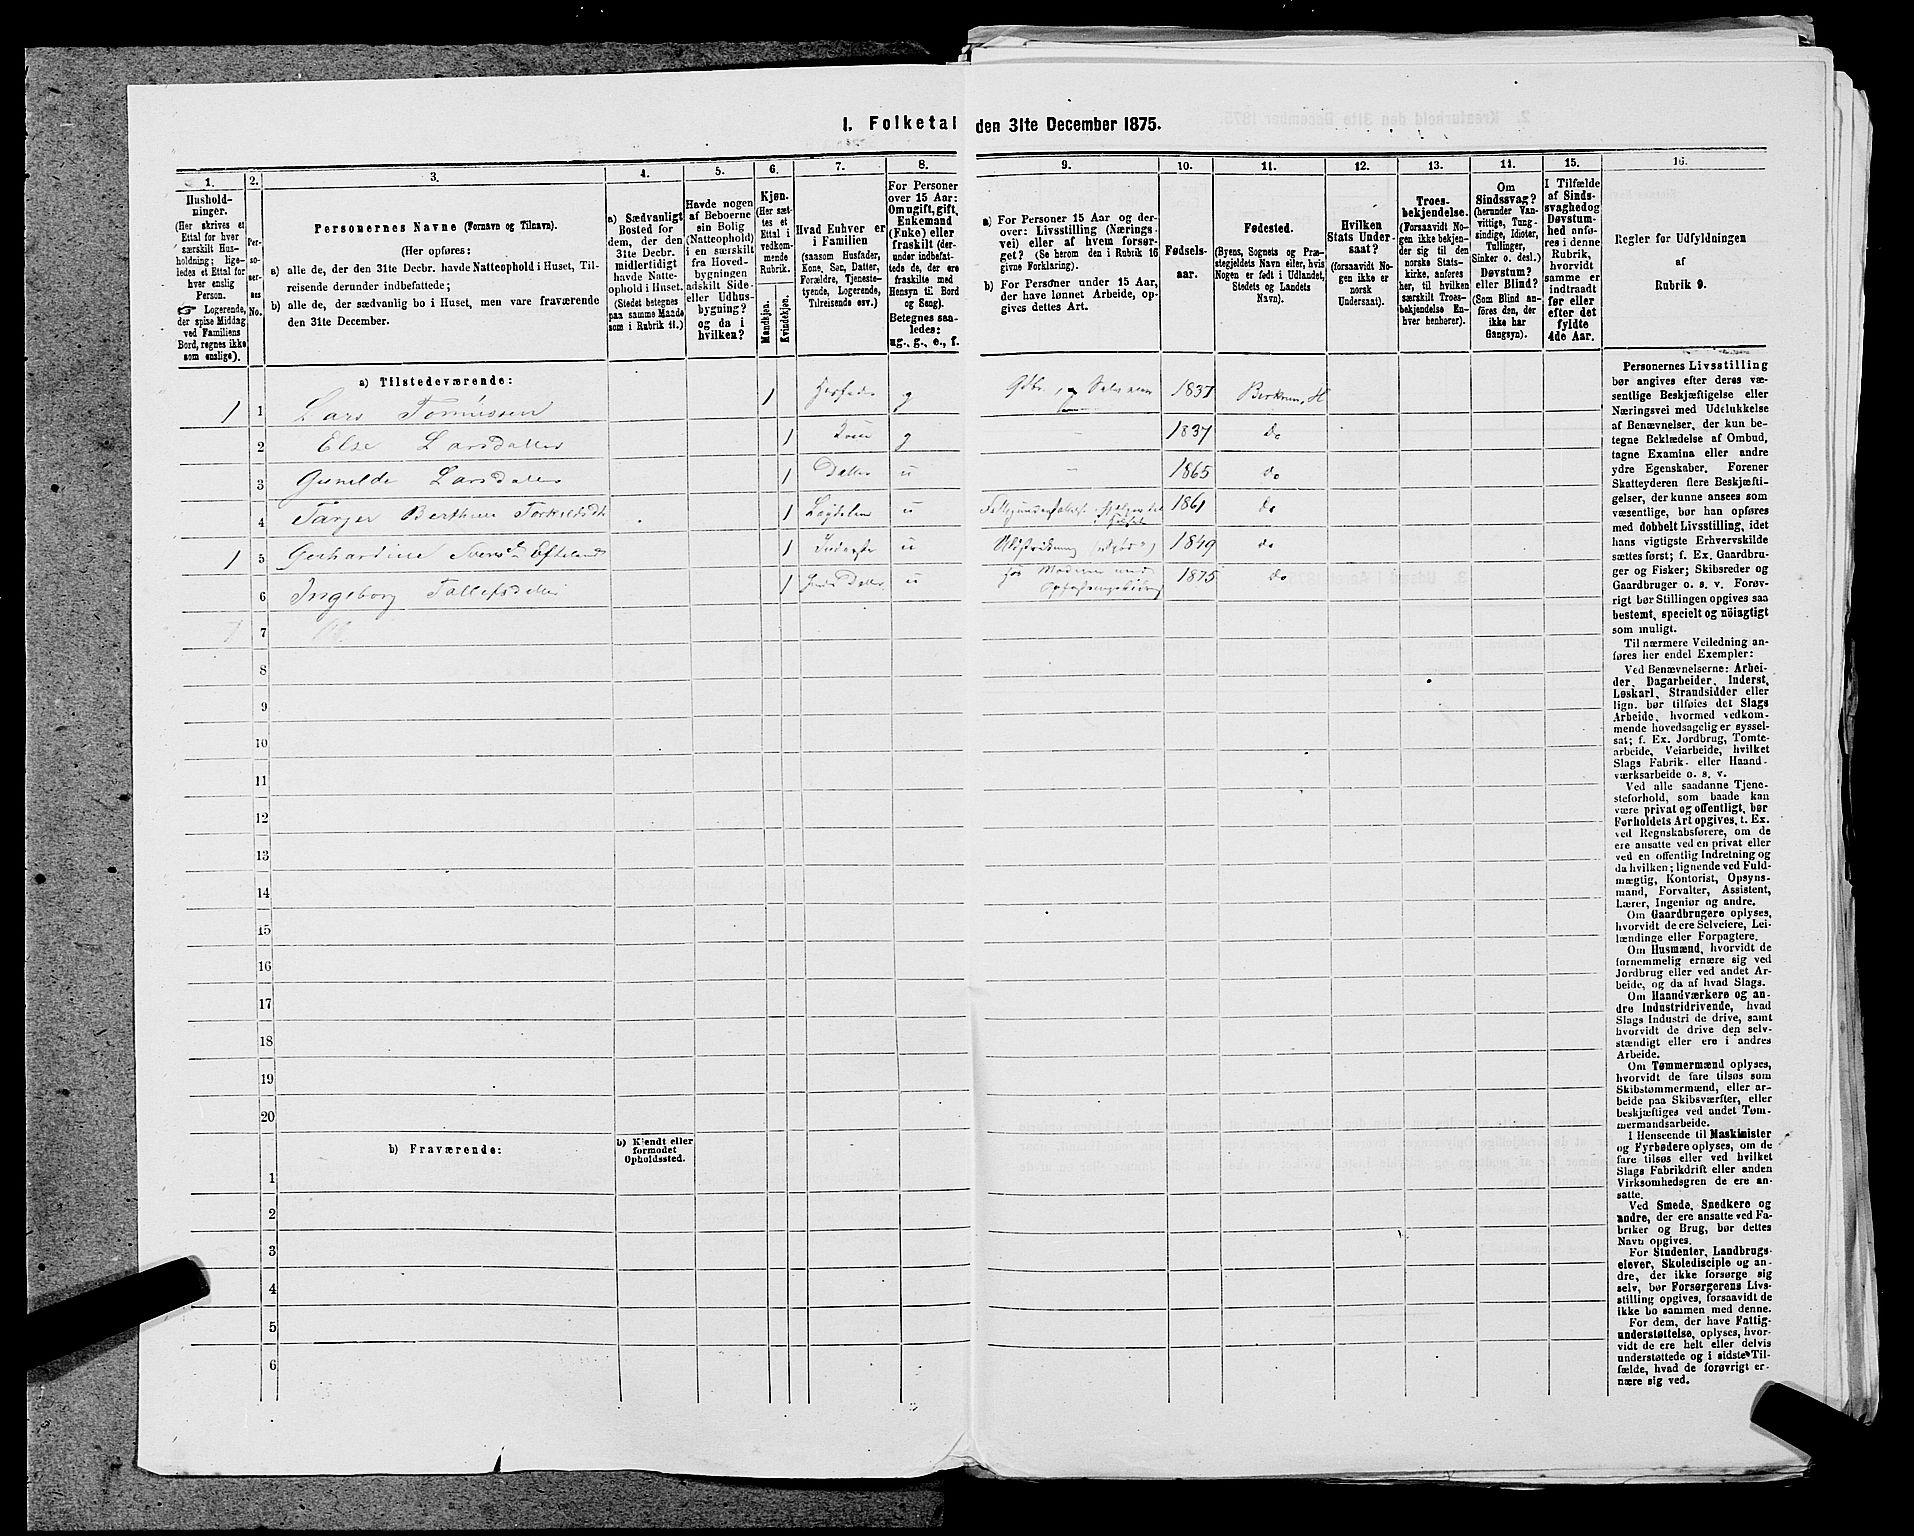 1. Folketal den 31te December 1875.
1.
Hushold-
ninger.
(Her skrives et
Ettal for hver
særskilt Hus-
holdning; lige-
ledes et Ettal for
hver enslig
Person.
☞ Logerende,
der spise Middag
ved Familiens
Bord, regnes ikke
som enslige).
2.
Per-
so-
ner-
nes
No.
3.
Personernes Navne (Fornavn og Tilnavn).
(Her opføres:
a) alle de, der den 31te Decbr. havde Natteophold i Huset, Til-
reisende derunder indbefattede;
b) alle de, der sædvanlig bo i Huset, men vare fraværende
den 31te December.
4.
a) Sædvanligt
Bosted for
dem, der den
31te Decbr.
midlertidigt
havde Natte-
ophold i Huset.
(Stedet betegnes
paa samme Maade
som i Rubrik 11.)
5.
Havde nogen
af Beboerne
sin Bolig
(Natteophold)
i en særskilt
fra Hoved-
bygningen
adskilt Side-
eller Udhus-
bygning?
og da i
hvilken?
6.
Kjøn.
(Her sæt-
tes et
Ettal i
vedkom-
mende
Rubrik.
Mandkjøn.
Kvindekjøn.
7.
Hvad Enhver er
i Familien
(saasom Husfader,
Kone, Søn, Datter,
Forældre, Tjeneste-
tyende, Logerende,
Tilreisende osv.)
8.
For Personer
over 15 Aar:
Om ugift, gift,
Enkemand
(Enke) eller
fraskilt (der-
under indbefat-
tede de, der ere
fraskilte med
Hensyn til Bord
og Seng).
Betegnes saa-
ledes:
ug., g., e., f.
9.
a) For Personer 15 Aar og der-
over: Livsstilling (Nærings-
vei) eller af hvem forsør-
get? (Se herom den i Rubrik 16
givne Forklaring).
b) For Personer under 15 Aar,
der have lønnet Arbeide, op-
gives dettes Art.
10.
Fødsels-
aar.
11.
Fødested.
(Byens, Sognets og Præ-
stegjeldets Navn eller, hvis
Nogen er født i Udlandet,
Stedets og Landets
Navn).
12.
Hvilken
Stats Under-
saat?
(forsaavidt No-
gen ikke er
norsk
Undersaat).
13.
Troes-
bekjendelse.
(Forsaavidt No-
gen ikke bekjen-
der sig til den
norske Stats-
kirke, anføres
her, til hvilken
særskilt Troes-
bekjendelse En-
hver henhører).
14.
Om
Sindssvag?
(herunder Van-
vittige, Tung-
sindige, Idioter,
Tullinger,
Sinker o. desl.)
Døvstum?
eller Blind?
(Som Blind an-
føres den, der
ikke har
Gangsyn).
15.
I Tilfælde
af Sinds-
svaghed og
Døvstum-
hed anfø-
res i denne
Rubrik,
hvorvidt
samme er
indtraadt
før eller
efter det
fyldte
4de Aar.
16.
Regler for Udfyldningen
af
Rubrik 9.
a) Tilstedeværende:
1 1 Lars Tønnessen 1 Husfader g Gbr. og Selveier 1837 Birkrem, H
2 Else Larsdatter 1 Kone g - 1837 do
3 Gunilde Larsdatter 1 Datter u - 1865 do
4 Tarjer Berthine Torkildsdt 1 Lægdslem u 1861 do
1 5 Gerhardine Svensd Efteland 1 Inderster u 1849 do
6 Ingeborg Tollefsdatter 1 Datter u hos Moderen 1875 do
7
8
9
10
11
12
13
14
15
16
17
18
19
20
b) Fraværende:
b) Kjendt eller
formodet
Opholdssted.
1
2
3
4
5
6
Personernes Livsstilling
bør angives efter deres væ-
sentlige Beskjæftigelse eller
Næringsvei med Udelukkelse
af Benævnelser, der kun be-
tegne Beklædelse af Ombud,
tagne Examina eller andre
ydre Egenskaber. Forener
Skatteyderen flere Beskjæfti-
gelser, der kunne ansees som
væsentlige, bør han opføres
med dobbelt Livsstilling, idet
hans vigtigste Erhvervskilde
sættes først; f. Ex. Gaardbru-
ger og Fisker; Skibsreder og
Gaardbruger o. s. v. Forøv-
rigt bør Stillingen opgives saa
bestemt, specielt og nöiagtigt
som muligt.
Til nærmere Veiledning an-
føres her endel Exempler:
Ved Benævnelserne: Arbei-
der, Dagarbeider, Inderst,
Løskarl, Strandsidder eller
lign. bør tilføies det Slags
Arbeide, hvormed vedkom-
mende hovedsagelig er syssel-
sat; f. Ex. Jordbrug, Tomte-
arbeide, Veiarbeide, hvilket
Slags Fabrik- eller Haand-
værksarbeide o. s. v.
Ved alle saadanne Tjene-
steforhold, som baade kan
være privat og offentligt, bør
Forholdets Art opgives, t. Ex.
ved Regnskabsførere, om de
ere ansatte ved en privat eller
ved en offentlig Indretning og
da hvilken; lignende ved Fuld-
mægtig, Kontorist, Opsyns-
mand, Forvalter, Assistent,
Lærer, Ingeniør og andre.
Om Gaardbrugere oplyses,
hvorvidt de ere Selveiere, Lei-
lændinge eller Forpagtere.
Om Husmænd, hvorvidt de
fornemmelig ernære sig ved
Jordbrug eller ved andet Ar-
beide, og da af hvad Slags.
Om Haandværkere og an-
dre Industridrivende, hvad
Slags Industri de drive, samt
hvorvidt de drive den selv-
stændigt eller ere i andres
Arbeide.
Om Tømmermænd oplyses,
hvorvidt de fare tilsøs som
Skibstømmermænd, eller ar-
beide paa Skibsværfter, eller
beskjæftiges ved andet Tøm-
mermandsarbeide.
I Henseende til Maskinister
og Fyrbødere oplyses, om de
fare tilsøs eller ved hvilket
Slags Fabrikdrift eller anden
Virksomhedsgren de ere an-
satte.
Ved Smede, Snedkere og
andre, der ere ansatte ved Fa-
briker og Brug, bør dettes
Navn opgives.
For Studenter, Landbrugs-
elever, Skoledisciple og an-
dre, der ikke forsørge sig
selv, bør Forsørgerens Livs-
stilling opgives, forsaavidt de
ikke bo sammen med denne.
For dem, der have Fattig-
understøttelse, oplyses, hvor-
vidt de ere helt eller delvis
understøttede og i sidste Til-
fælde, hvad de forøvrigt er-
nære sig ved.